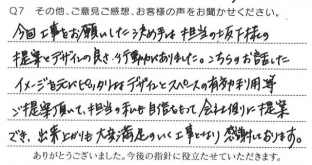 Q7 その他、ご意見ご感想、お客様の声をお聞かせください。
今回工事をお願いした決め手は担当の坂下様の
提案とデザインの良さ、行動力にありました。こちらのお話した
イメージを元にピッタリなデザインとスペースの有効利用等
ご提案頂いて、担当の私も自信をもって会社側に提案
でき、出来上がりも大変満足のいく工事となり感謝しております。
ありがとうございました。今後の指針に役立たせていただきます。